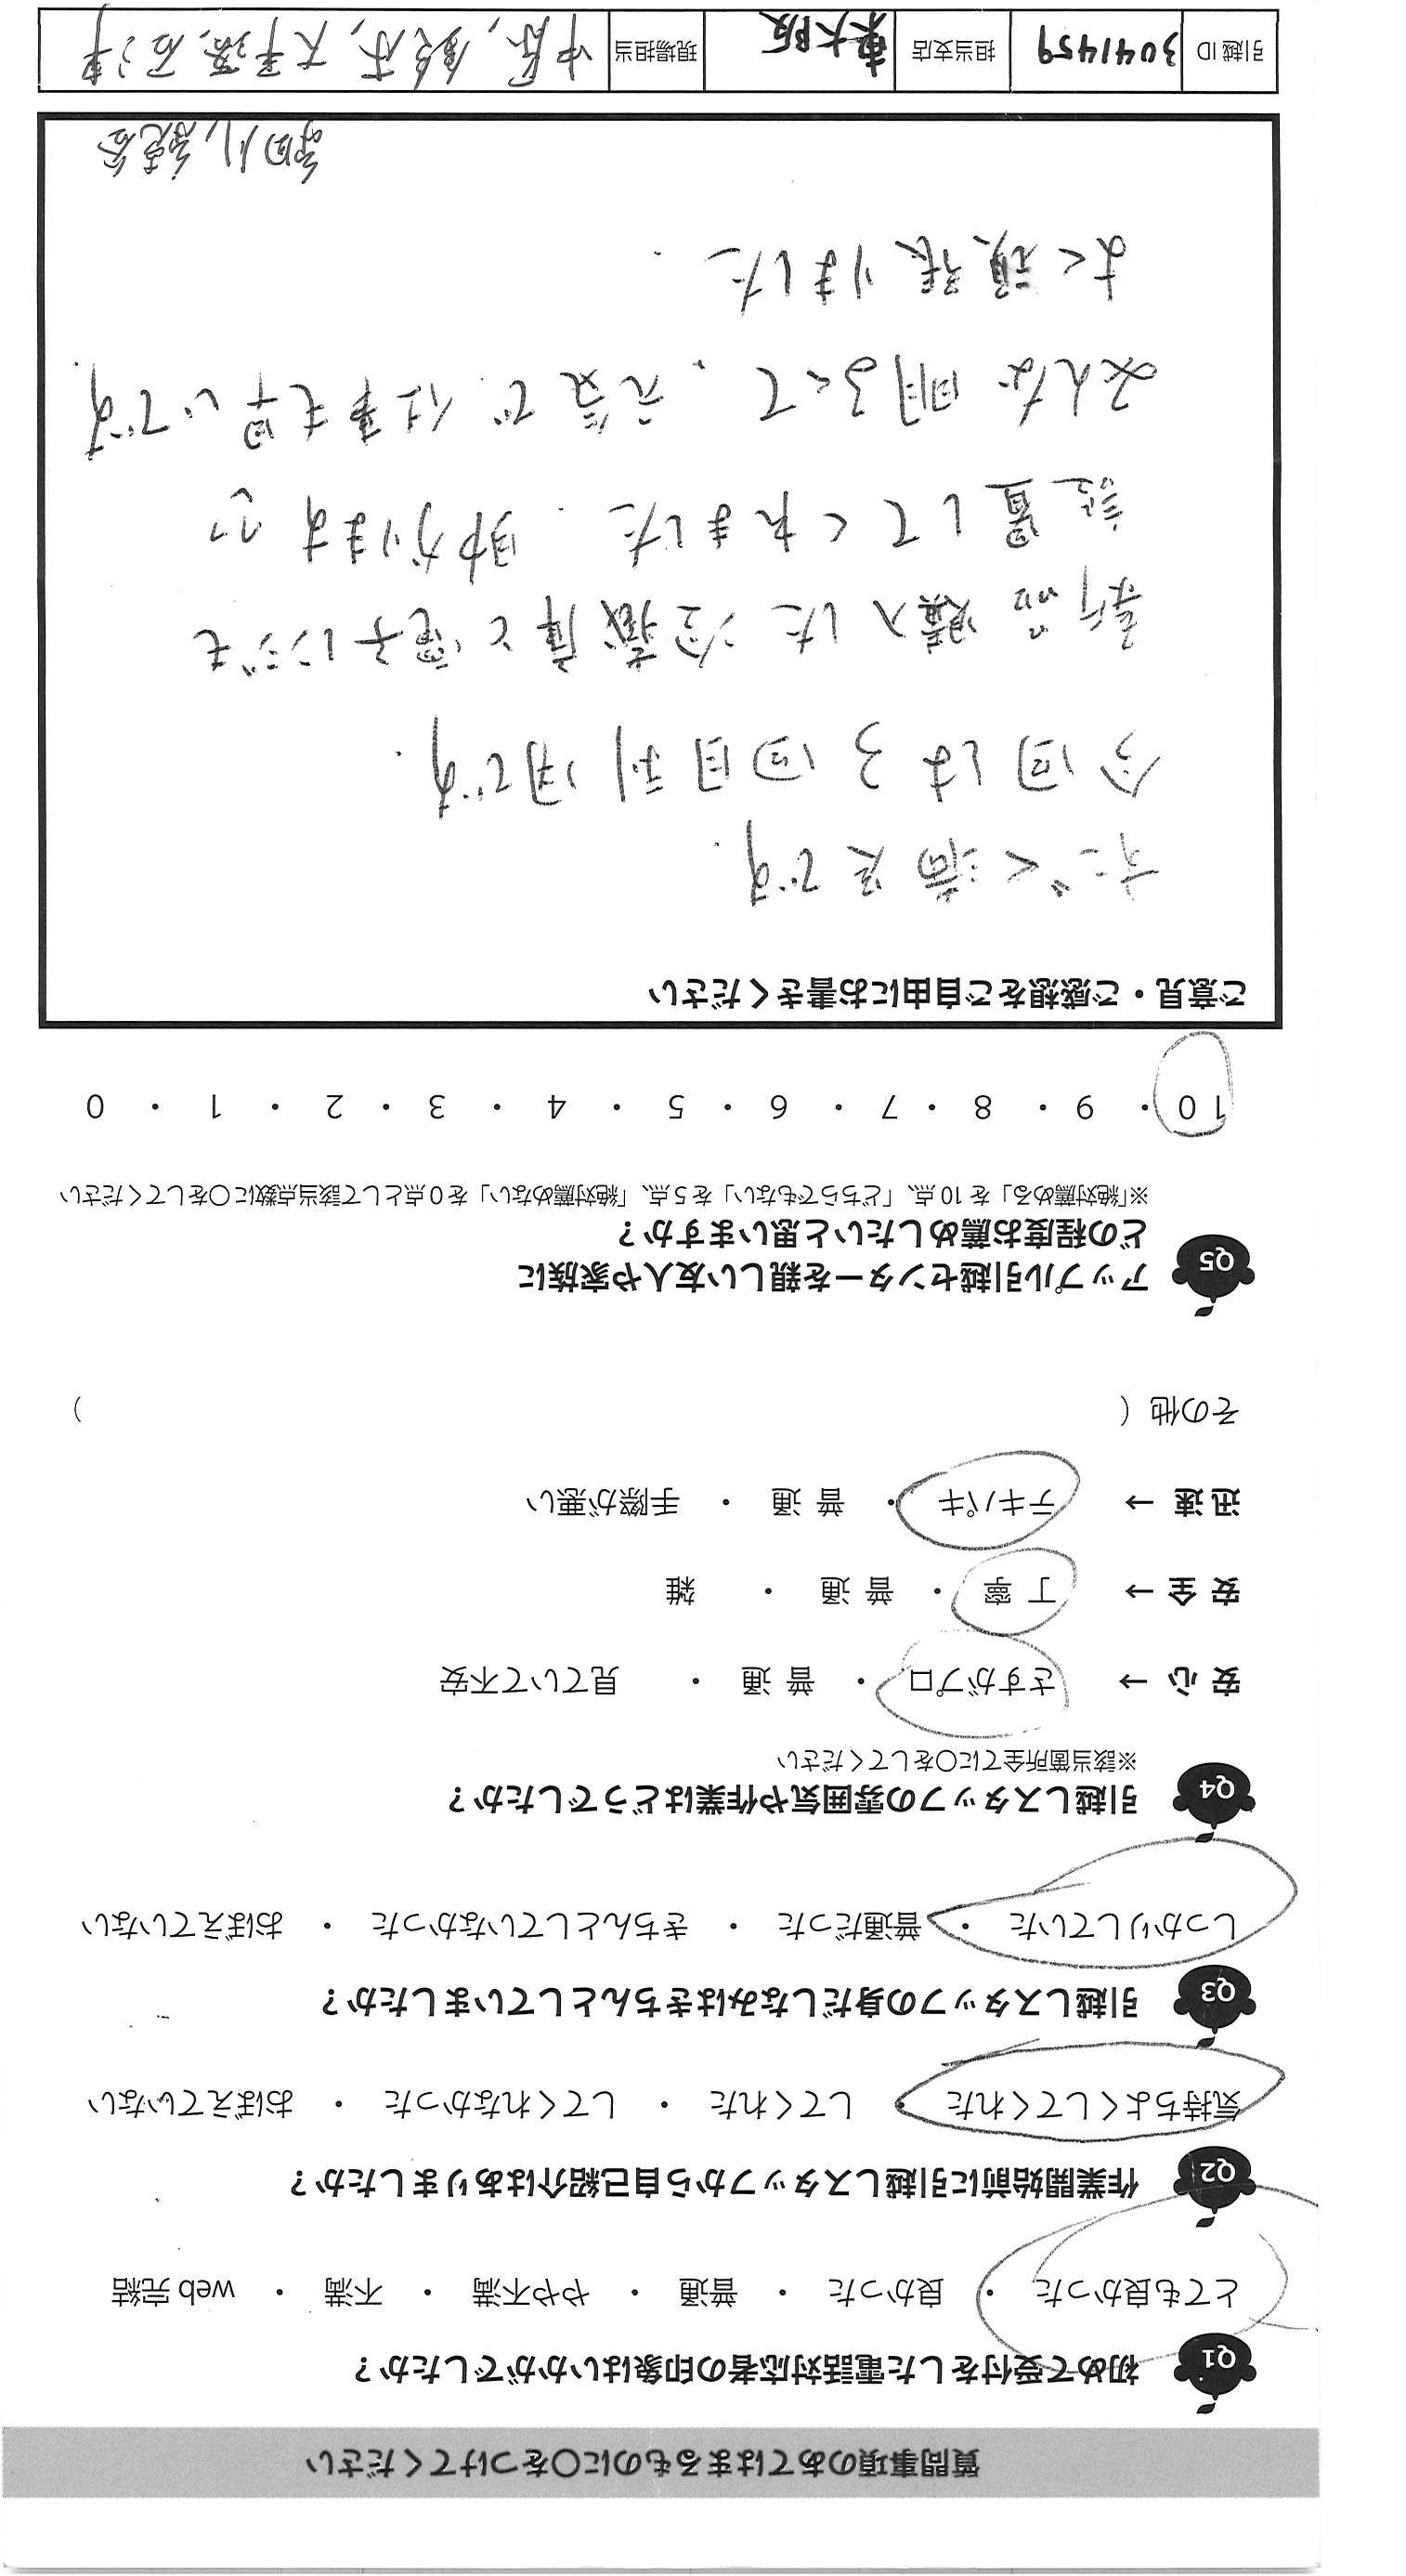 質問事項のあてはまるものに〇をつけてください
Q1 初めて受付をした電話対応者の印象はいかがでしたか？
とても良かった ・ 良かった ・ 普通 ・ やや不満 ・ 不満 ・ web 完結
Q2 作業開始前に引越しスタッフから自己紹介はありましたか？
気持ちよくしてくれた ・ してくれた ・ してくれなかった ・ おぼえていない
Q3 引越しスタッフの身だしなみはきちんとしていましたか？
しっかりしていた ・ 普通だった ・ きちんとしていなかった ・ おぼえていない
Q4 引越しスタッフの雰囲気や作業はどうでしたか？
※該当箇所全てに〇をしてください
安 心 → さすがプロ ・ 普 通 ・ 見ていて不安
安 全 → 丁 寧 ・ 普 通 ・ 雑
迅 速 → テキパキ ・ 普 通 ・ 手際が悪い
その他（ ）
Q5 アップル引越センターを親しい友人や家族に
どの程度お薦めしたいと思いますか？
※「絶対薦める」を 10 点、「どちらでもない」を 5 点、「絶対薦めない」を 0 点として該当点数に〇をしてください
10 ・ 9 ・ 8 ・ 7 ・ 6 ・ 5 ・ 4 ・ 3 ・ 2 ・ 1 ・ 0
ご意見・ご感想をご自由にお書きください
すごく満足です.
今回は3回目利用です.
新品購入した冷蔵庫と電子レンジも
設置してくれました. 助かります
みんな明るくて、元気で仕事も早いです.
よく頑張りました.
細川,
引越 ID 3041459 担当支店 東大阪 現場担当 中原, 鈴木, 大平, 石津